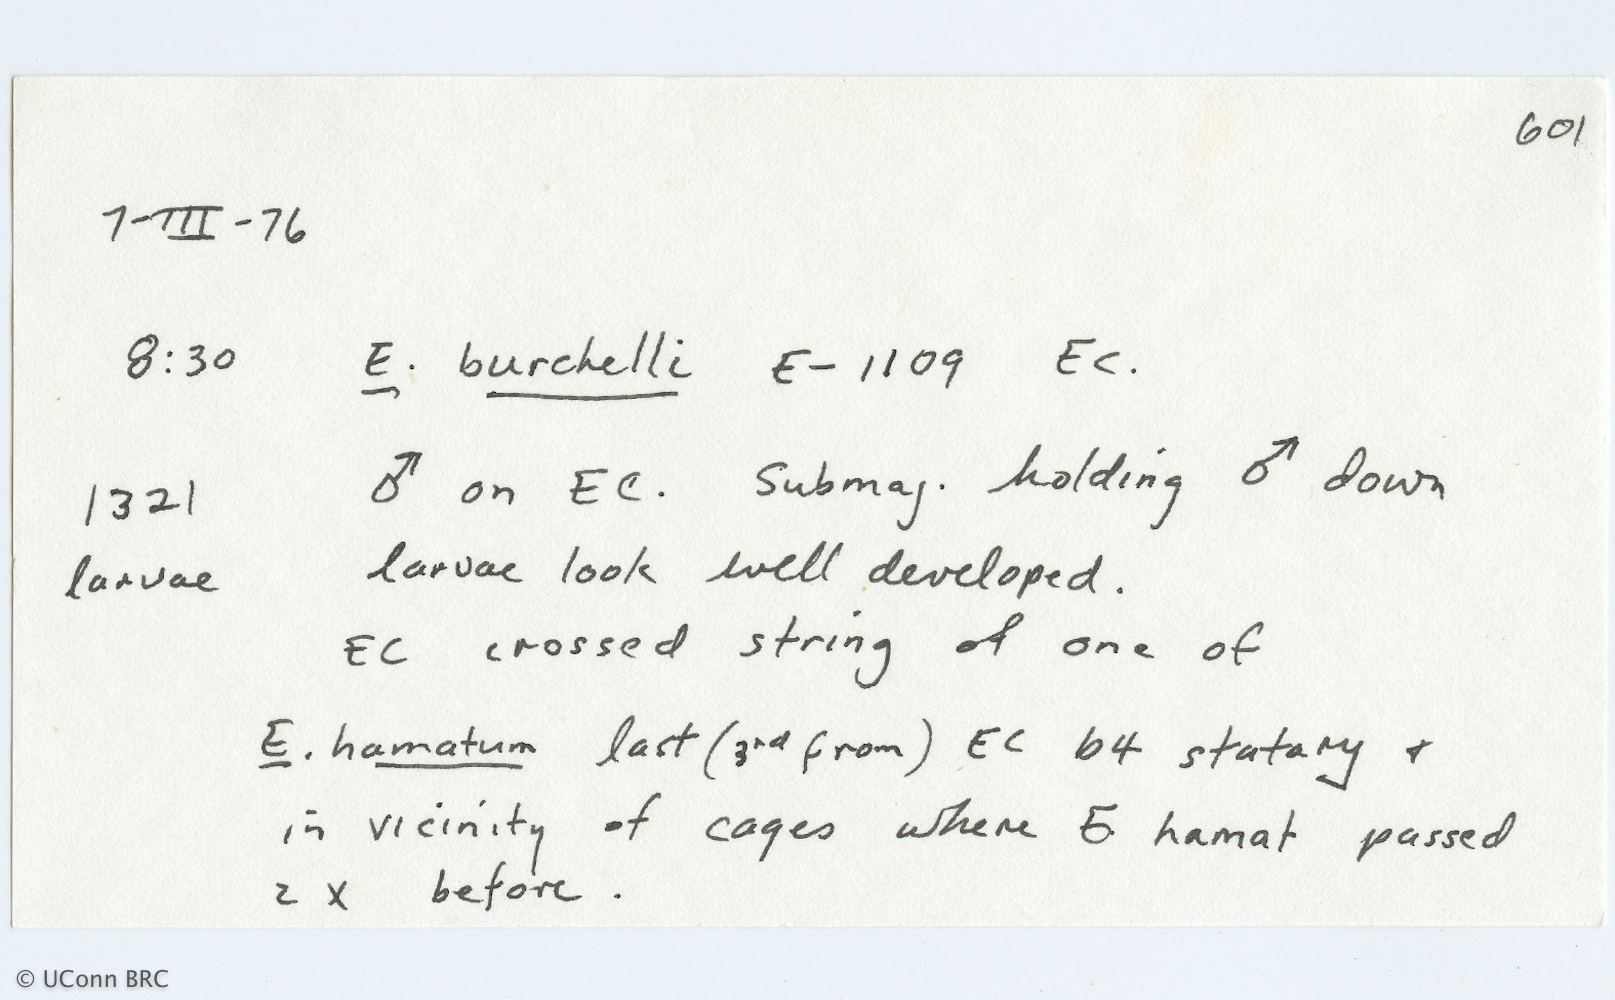 601
7-III-76
8:30 E. burchelli E-1109 EC.
♂ on EC. Submaj. holding ♂ down
1321
larvae larvae look well developed.
EC crossed string of one of
E. hamatum last (3rd from) EC b4 statary &
in vicinity of cages where E hamat passed
2 x before.
© UConn BRC